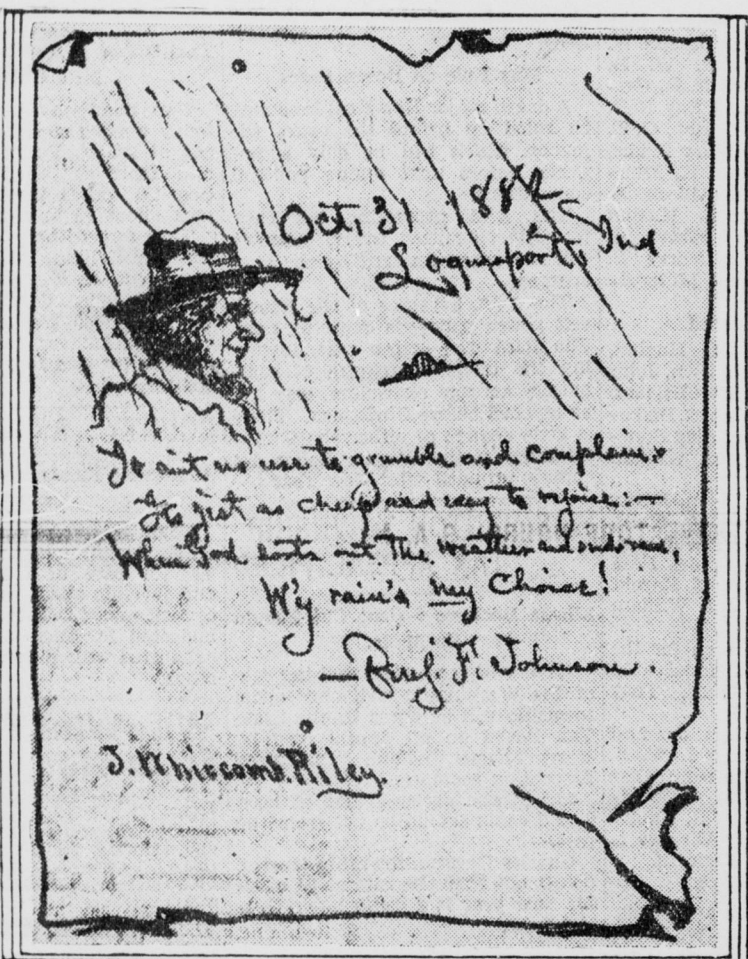 Oct, 31 1882
Logansport, Ind
It aint no use to grumble and complain:
Its jest as cheap and easy to rejoice:—
When God sorts out the weather and sends rain,
W'y rain's my choice!
—Benj. F. Johnson.
J. Whitcomb Riley.